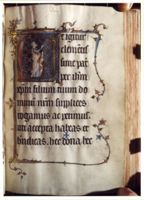 e igitur
clemētis
sime pat
per ihm
xpm filium tuum do
minū nrm supplices
rogamus ac petimus.
uti accepta habeas et
benedicas. hec dona hec